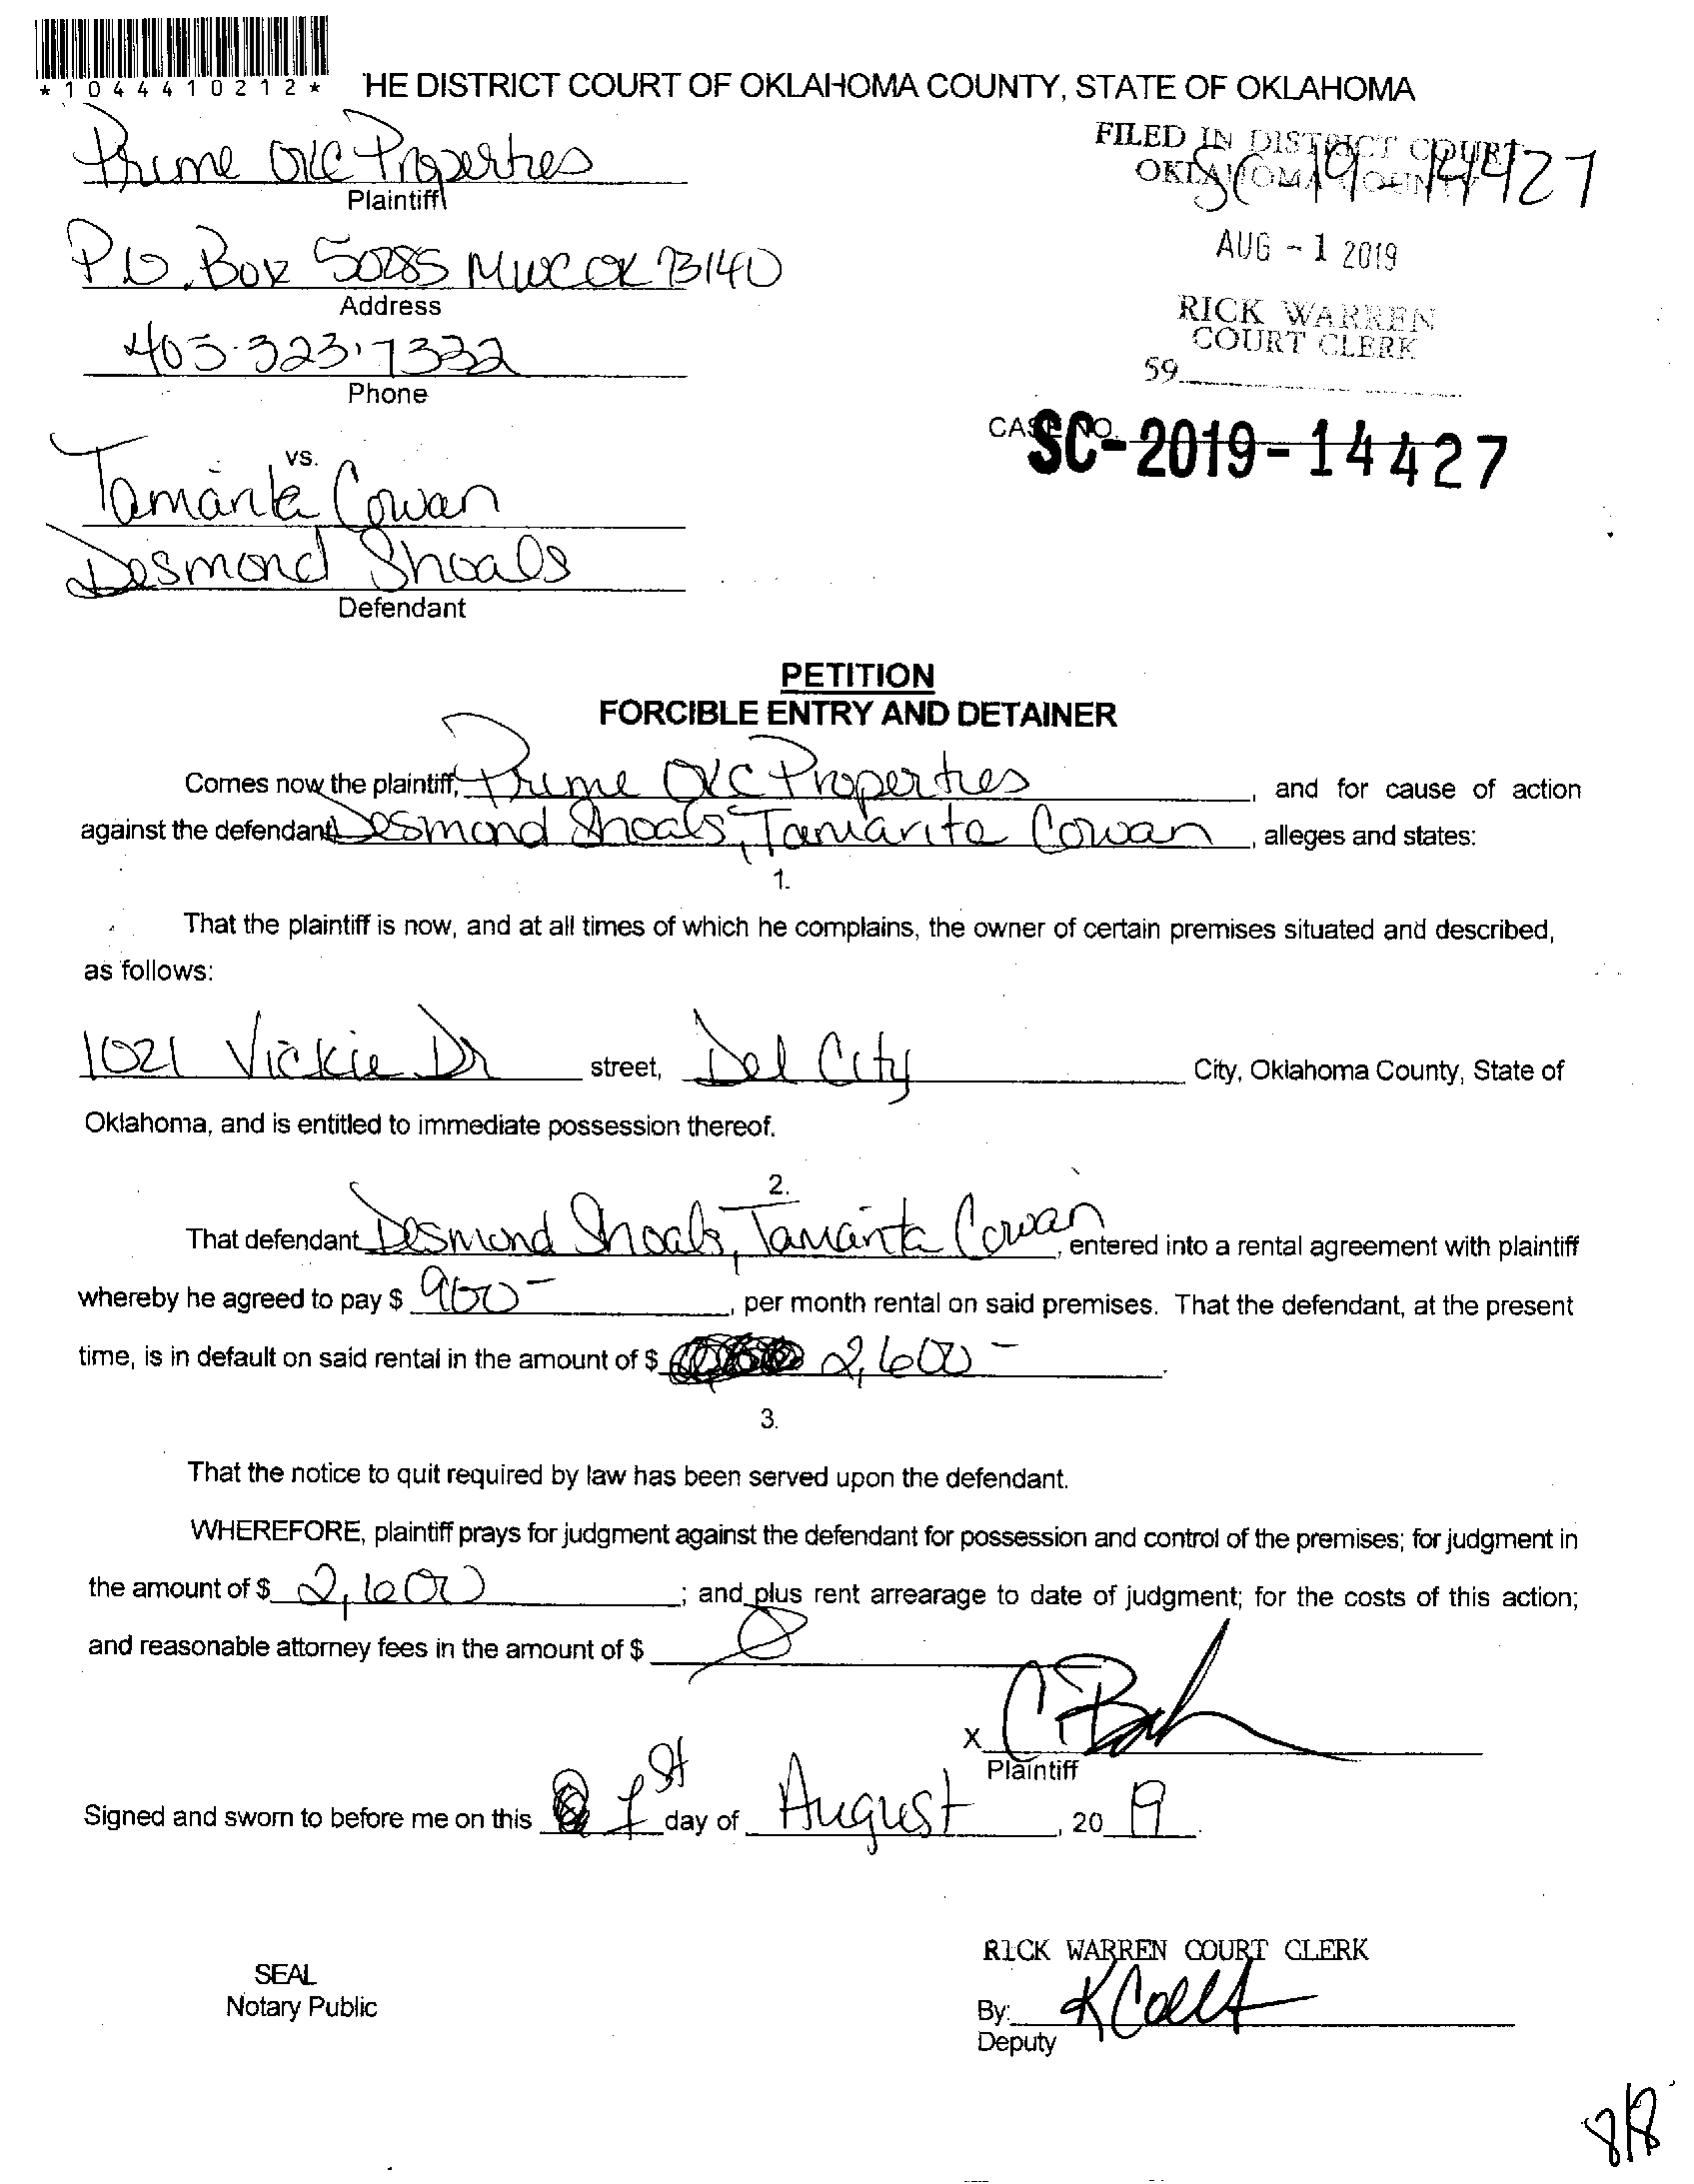 *1044410212*
HE DISTRICT COURT OF OKLAHOMA COUNTY, STATE OF OKLAHOMA
Prime OKC Properties
Plaintiff
FILED IN DISTRICT COURT
OKLAHOMA COUNTY
SC-19-14427
P.O. Box 50285 MWC OK 73140
Address
AUG - 1 2019
RICK WARREN
COURT CLERK
405-323-7332
Phone
59
CASE NO.
SC-2019-14427
vs.
Tamarita Cowan
Desmond Shoals
Defendant
PETITION
FORCIBLE ENTRY AND DETAINER
Comes now the plaintiff, Prime OKC Properties, and for cause of action
against the defendant Desmond Shoals, Tamarita Cowan, alleges and states:
1.
That the plaintiff is now, and at all times of which he complains, the owner of certain premises situated and described,
as follows:
1021 Vickie Dr street, Del City City, Oklahoma County, State of
Oklahoma, and is entitled to immediate possession thereof.
2.
That defendant Desmond Shoals, Tamarita Cowan, entered into a rental agreement with plaintiff
whereby he agreed to pay $ 900-, per month rental on said premises. That the defendant, at the present
time, is in default on said rental in the amount of $ 2,600-.
3.
That the notice to quit required by law has been served upon the defendant.
WHEREFORE, plaintiff prays for judgment against the defendant for possession and control of the premises; for judgment in
the amount of $ 2,600; and plus rent arrearage to date of judgment; for the costs of this action;
and reasonable attorney fees in the amount of $ 0
X
Plaintiff
Signed and sworn to before me on this 1st day of August, 2019.
RICK WARREN COURT CLERK
SEAL
Notary Public
By:
Deputy
8/8